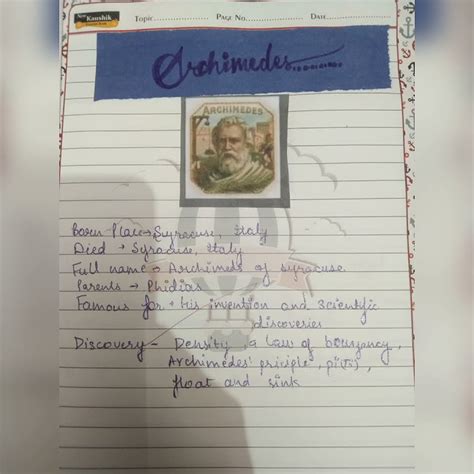 New Kaushik
Topic
Page No.
Date
Archimedes........
ARCHIMEDES
Born Place → Syracuse, Italy
Died → Syracuse, Italy
Full name → Archimeds of syracuse.
Parents → Phidias
Famous for → his invention and Scientific
discoveries
Discovery - Density, a Law of bouyancy,
Archimedes' priciple, pi(π),
float and sink